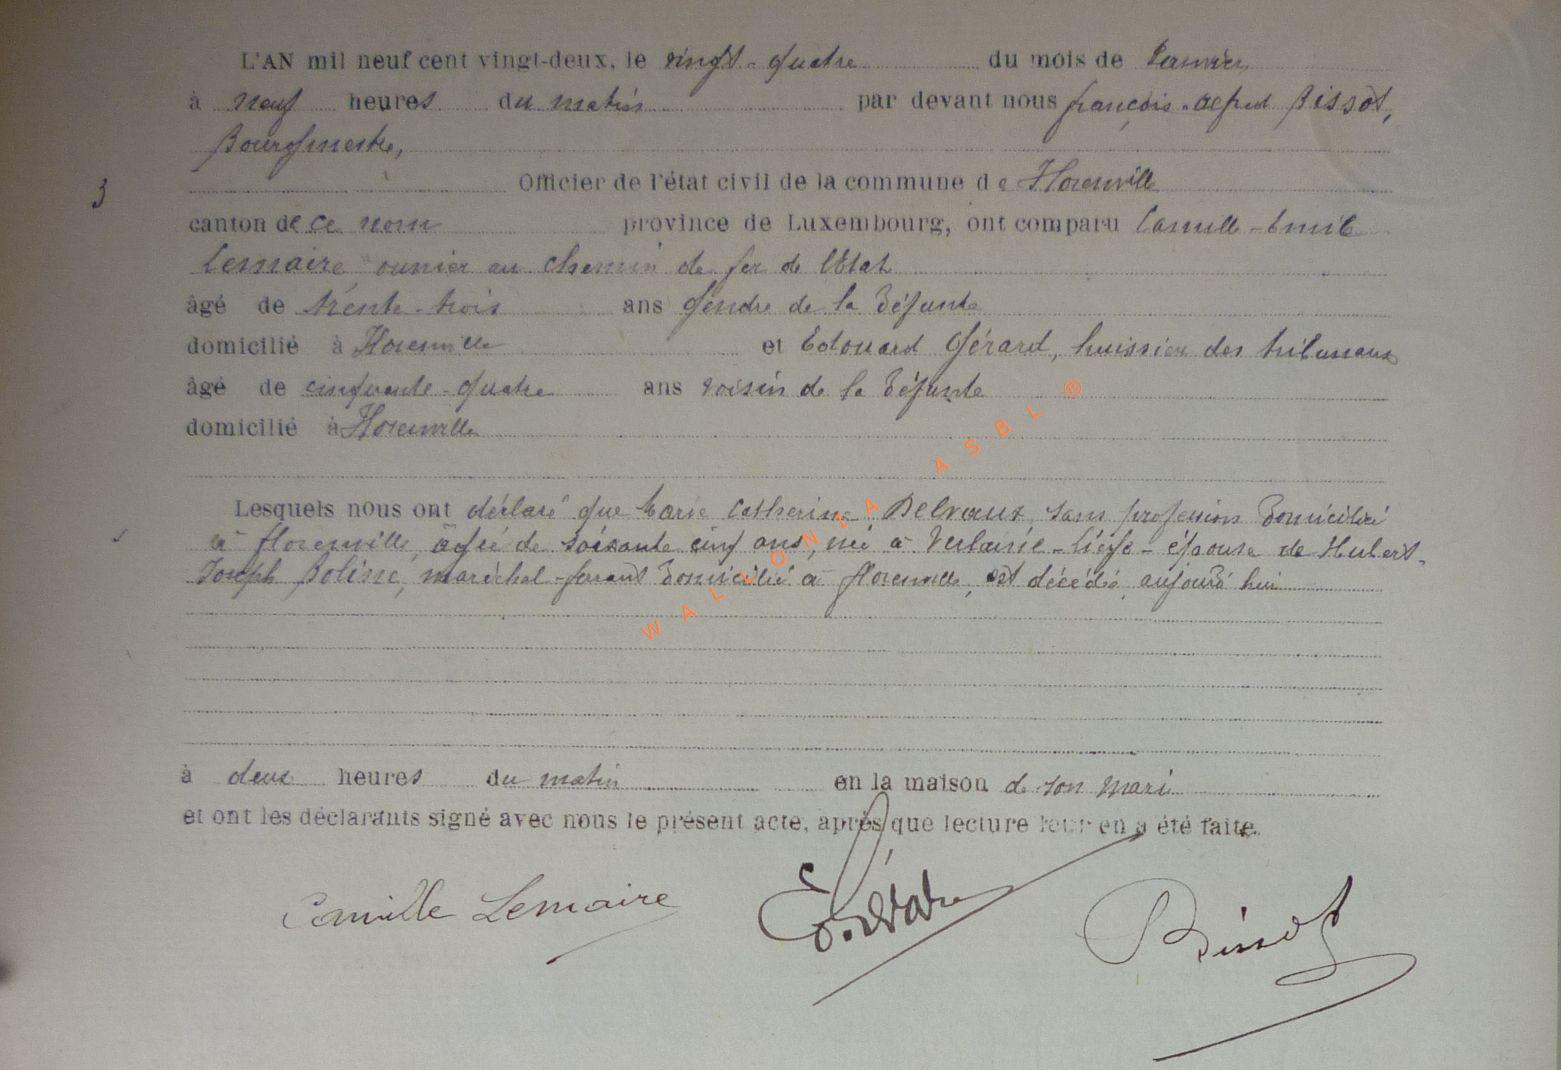 L'AN mil neuf cent vingt-deux, le vingt-quatre du mois de Janvier
à neuf heures du matin par devant nous françois-Alfred Bissot,
Bourgmestre,
3
Officier de l'état civil de la commune de Florenville
canton de ce nom province de Luxembourg, ont comparu Camille-Emile
Lemaire ouvrier au chemin de fer de l'Etat
âgé de trente-trois ans gendre de la défunte
domicilié à Florenville et Edouard Gérard, huissier des tribunaux
âgé de cinquante-quatre ans voisin de la défunte
domicilié à Florenville
Lesquels nous ont déclaré que Marie Catherine Delvaux, sans profession domiciliée
à florenville, âgée de soixante cinq ans, née à Verlaine-liége-épouse de Hubert-
Joseph maréchal-ferrant domicilié à florenville, est décédée, aujourd'hui
à deux heures du matin en la maison de son mari
et ont les déclarants signé avec nous le présent acte, après que lecture leur en a été faite.
Camille Lemaire Bissot
WALLONIA ASBL ®